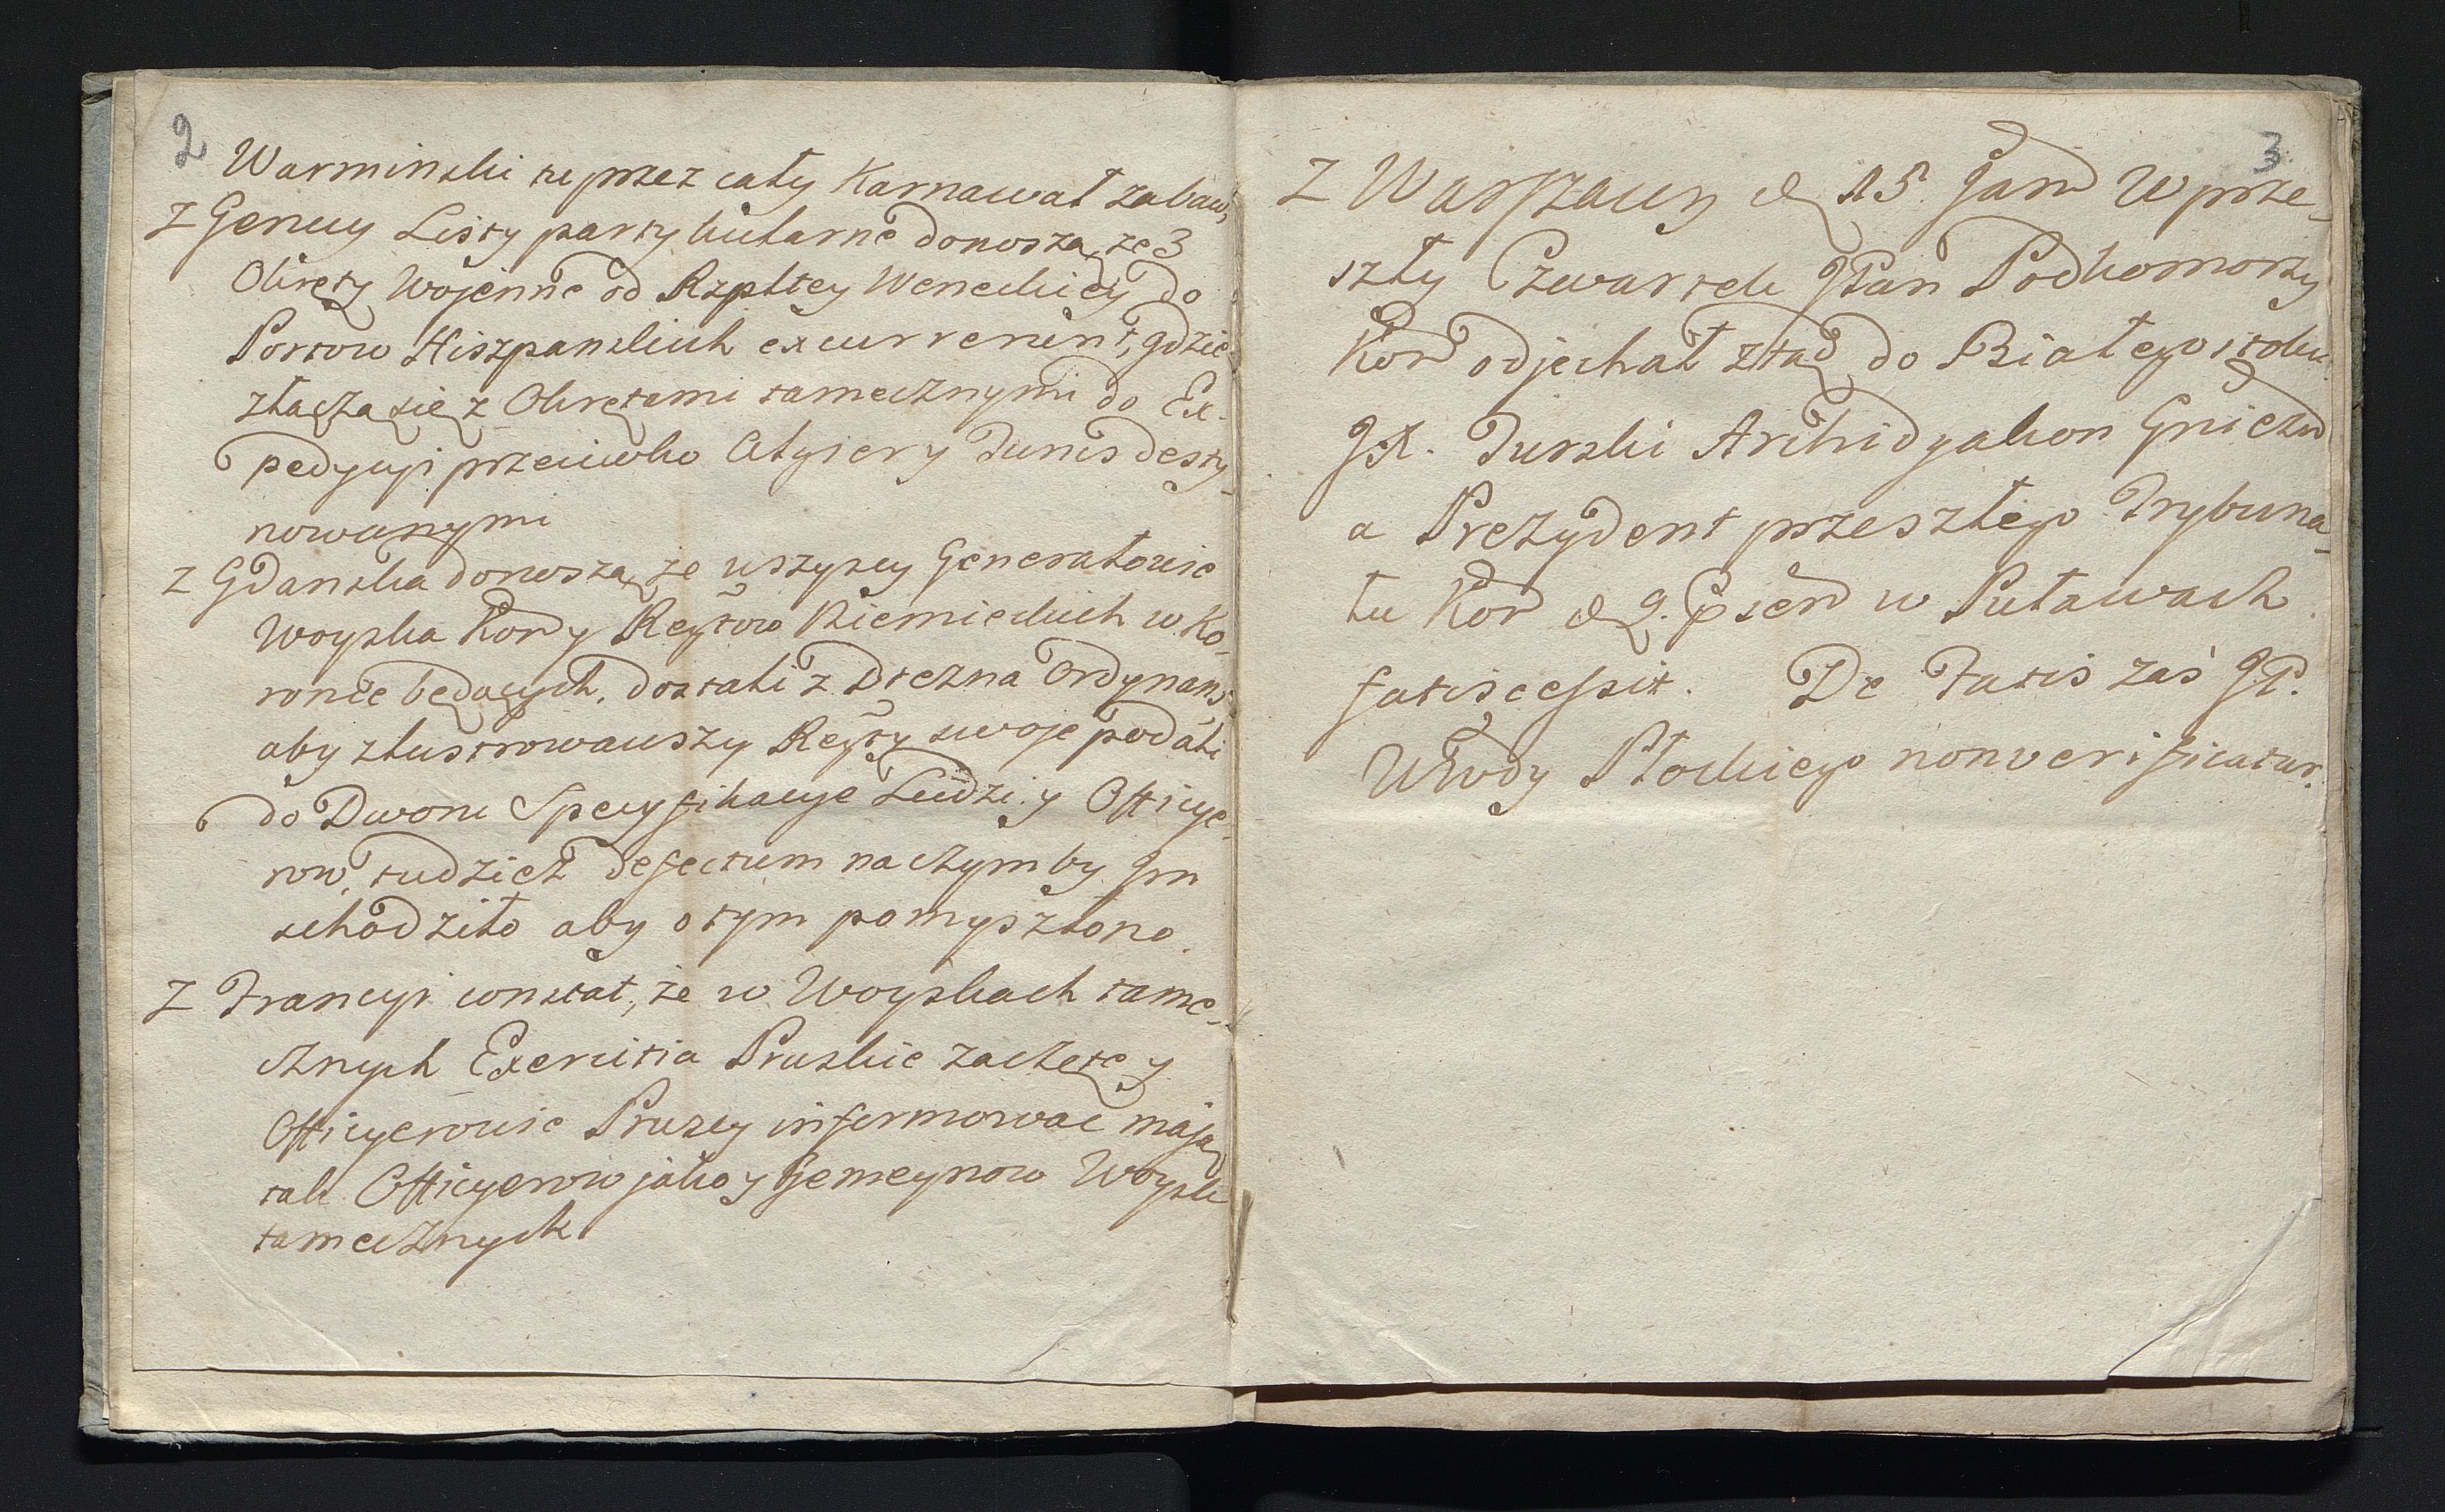 2
Warminski tu przez cały Karnawał zabaw,
Z Genuy Listy partykularne donoszą, że 3
Okręty Wojenne od Rzpltey Weneckiey do
Portow Hiszpanskich excurrerunt, gdzie
złączą się z Okrętami tamecznymi do Ex-
pedycyi przeciwko Algiery Tunis desty-
nowanymi
Z Gdanska donoszą, że wszyscy Generałowie
Woyska Kor y Regtow Niemieckich w Ko-
ronie będących, dostali z Drezna Ordynans
aby zlustrowawszy Regty swoje podali
do Dworu Specyfikacye Ludzi y Officye-
row, tudzież defectum na czymby Im
schodziło aby o tym pomyszlono.
Z Francyi constat, że w Woyskach tame-
cznych Exercitia Pruskie zaczęte y
Officyerowie Pruscy informować mają
tak Officyerow jako y Gemeynow Woysk
tamecznych
3
Z Warszawy d 15. Jan W prze-
szły Czwartek JPan Podkomorzy
Kor odjechał ztąd do Białegostoku.
JX. Turski Archidyakon Gniezn
a Prezydent przeszłego Trybuna-
łu Kor d 9. Psen w Puławach
fatis cessit. De Fatis zaś JP.
Wwody Płockiego non verificatur.